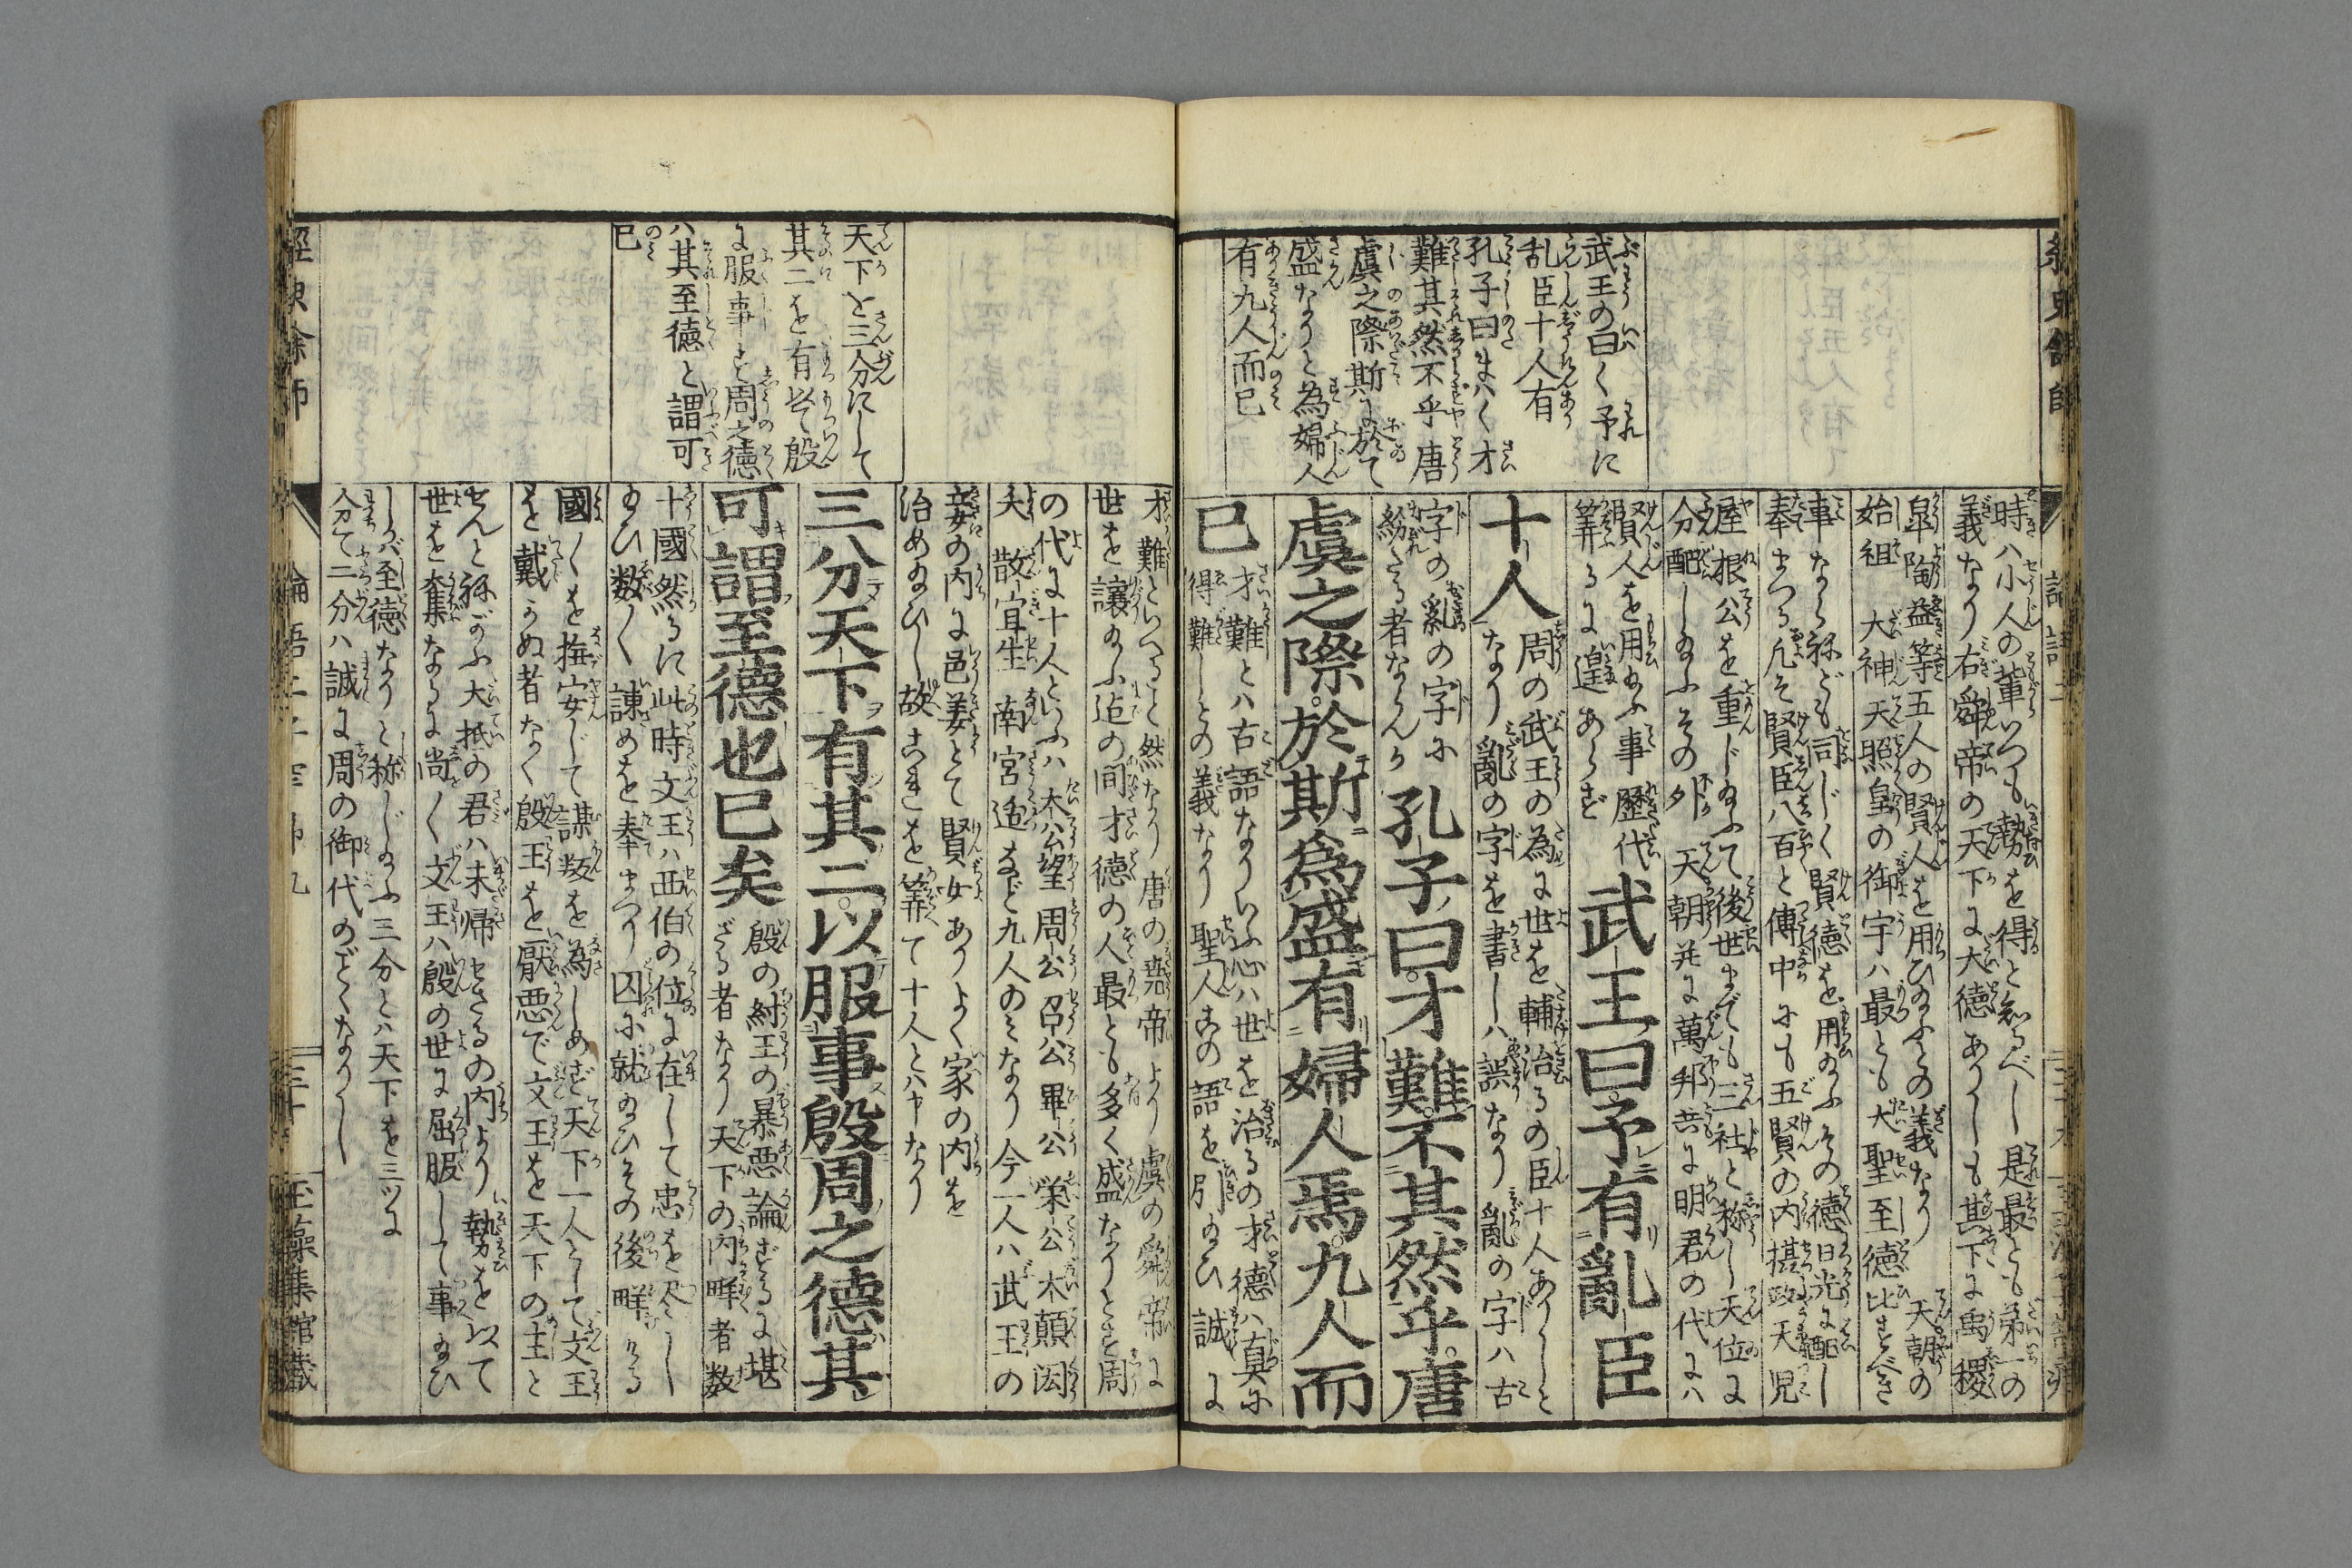 武王の曰く予に
乱臣十人有
孔子曰まハく才
難其然不乎唐
虞之際斯に於て
盛なりと為婦人
有九人而已
時ハ小人の輩いつも勢を得と知るべし是最とも第一の
義なり右舜帝の天下に大徳ありしも其下に禹稷
皐陶益等五人の賢人を用ひ給ふとの義なり 天朝の
始祖 大神天照皇の御宇ハ最とも大聖至徳比すべき
事なら ねども同じく賢徳を用給ふその徳日光に配し
奉まつる凡そ賢臣八百と傳中にも五賢の内摂政天児
屋根公を重じ給ふて後世までも三社と称し天位に
分配し給ふその外 天朝並に萬邦共に明君の代にハ
賢人を用給ふ事歴代
筭るに遑あらず
武王曰予有亂臣
十人
周の武王の為に世を輔治るの臣十人ありしと
なり亂の字を書しハ誤なり亂の字ハ古
字の亂の字に
紛たる者ならんか
孔子曰才難不其然乎唐
虞之際於斯為盛有婦人焉九人而
已
才難とハ古語なりいふ心ハ世を治るの才徳ハ真に
得難しとの義なり聖人古の語を引給ひ誠に
天下を三分にして
其二を有以て殷
に服事す周之徳
ハ其至徳と謂可
已
才難といへること然なり唐の堯帝より虞の舜帝に
世を譲給ふ迄の間才徳の人最とも多く盛なりとす周
の代に十人といふハ太公望周公召公畢公栄公太顛閎
夭散宜生南宮适など九人のみなり今一人ハ武王の
妾の内に邑姜とて賢女ありよく家の内を
治め給ひし故これを筭て十人とハ申なり
三分天下有其二以服事殷周之德其
可謂至德也已矣
殷の紂王の暴悪論ずるに堪
ざる者なり天下の内畔者数
十國然るに此時文王ハ西伯の位に在して忠を尽し
給ひ数〱諌めを奉まつり囚に就給ひその後畔ける
國〱を撫安じて謀叛を為しめず天下一人として文王
を戴かぬ者なく殷王を厭悪で文王を天下の主と
せんと祢がふ大抵の君ハ未帰せざるの内より勢を以て
世を奪集なるに尚〱文王ハ殷の世に屈服して事給ひ
しかバ至徳なりと称じ給ふ三分とハ天下を三ツに
分て二分ハ誠に周の御代のごとくなりし
經典餘師
論語
三十
至藻集館蔵